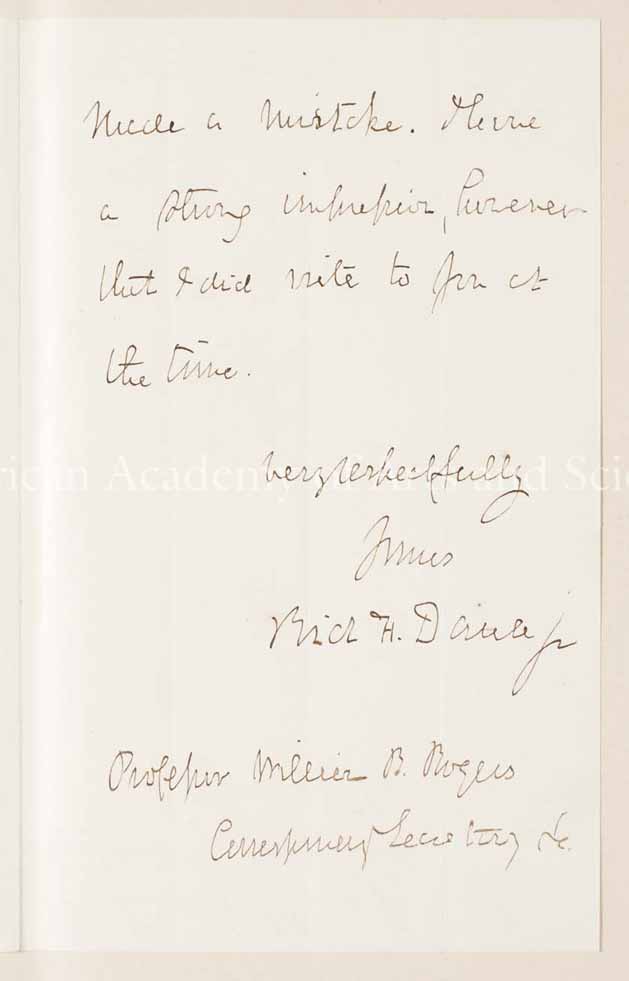 made a mistake. I have
a strong impression, however
that I did write to you at
the time.
Very respectfully
Yours
Rich H. Dana jr
Professor William B. Rogers
Corresponding Secretary &c.
American Academy of Arts and Sci